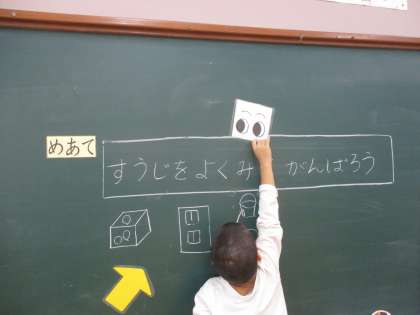 めあて
すうじを よくみ がんばろう